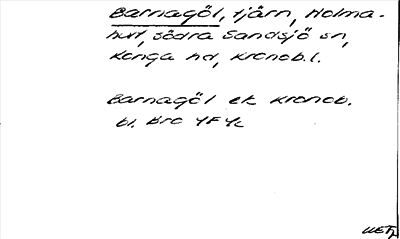 Barnagöl, tjärn, Holma-
hult, södra Sandsjö sn,
Konga hd, Kronob. l.
Barnagöl ek Kronob.
bl. Bro 4F 4c